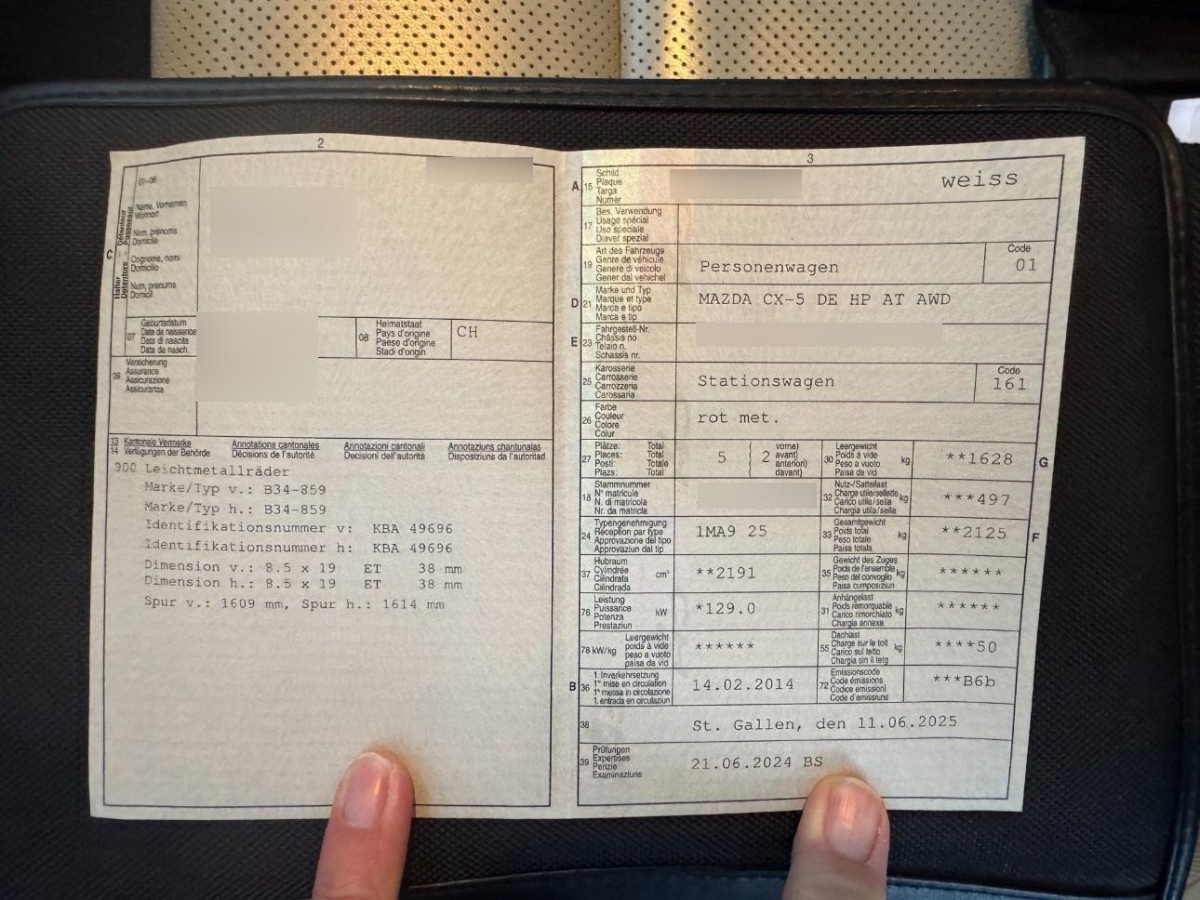 2
01-06
Name, Vornamen
Wohnort
Nom, prénoms
Domicile
C
Cognome, nomi
Domicilio
Num, prenums
Domicil
Halter
Détenteur
Detentore
Possessur
07
Geburtsdatum
Date de naissance
Data di nascita
Data da nasch.
08
Heimatstaat
Pays d'origine
Paese d'origine
Stadi d'origin
CH
09
Versicherung
Assurance
Assicurazione
Assicuranza
13
14
Kantonale Vermerke
Verfügungen der Behörde
Annotations cantonales
Décisions de l'autorité
Annotazioni cantonali
Decisioni dell'autorità
Annotaziuns chantunalas
Disposiziuns da l'autoritad
900 Leichtmetallräder
Marke/Typ v.: B34-859
Marke/Typ h.: B34-859
Identifikationsnummer v: KBA 49696
Identifikationsnummer h: KBA 49696
Dimension v.: 8.5 x 19 ET 38 mm
Dimension h.: 8.5 x 19 ET 38 mm
Spur v.: 1609 mm, Spur h.: 1614 mm
3
A 15
Schild
Plaque
Targa
Numer
weiss
17
Bes. Verwendung
Usage spécial
Uso speciale
Diever spezial
19
Art des Fahrzeugs
Genre de véhicule
Genere di veicolo
Gener dal vehichel
Personenwagen
Code
01
D 21
Marke und Typ
Marque et type
Marca e tipo
Marca e tip
MAZDA CX-5 DE HP AT AWD
E 23
Fahrgestell-Nr.
Châssis no
Telaio n.
Schassis nr.
25
Karosserie
Carrosserie
Carrozzeria
Carossaria
Stationswagen
Code
161
26
Farbe
Couleur
Colore
Colur
rot met.
27
Plätze: Total
Places: Total
Posti: Totale
Plazs: Total
5
2
vorne)
avant)
anteriori)
davant)
30
Leergewicht
Poids à vide
Peso a vuoto
Paisa da vid
kg
**1628
G
18
Stammnummer
N° matricule
N. di matricola
Nr. da matricla
32
Nutz-/Sattellast
Charge utile/sellette
Carico utile/sella
Chargia utila/sella
kg
***497
24
Typengenehmigung
Réception par type
Approvazione del tipo
Approvaziun dal tip
1MA9 25
33
Gesamtgewicht
Poids total
Peso totale
Paisa totala
kg
**2125
F
37
Hubraum
Cylindrée
Cilindrata
Cilindrada
cm³
**2191
35
Gewicht des Zuges
Poids de l'ensemble
Peso del convoglio
Paisa cumposiziun
kg
******
76
Leistung
Puissance
Potenza
Prestaziun
kW
*129.0
31
Anhängelast
Poids remorquable
Carico rimorchiato
Chargia annexa
kg
******
78 kW/kg
Leergewicht
poids à vide
peso a vuoto
paisa da vid
******
55
Dachlast
Charge sur le toit
Carico sul tetto
Chargia sin il tetg
kg
****50
B 36
1. Inverkehrsetzung
1re mise en circulation
1a messa in circolazione
1. entrada en circulaziun
14.02.2014
72
Emissionscode
Code émissions
Codice emissioni
Code d'emissiuns
***B6b
38
St. Gallen, den 11.06.2025
39
Prüfungen
Expertises
Perizie
Examinaziuns
21.06.2024 BS